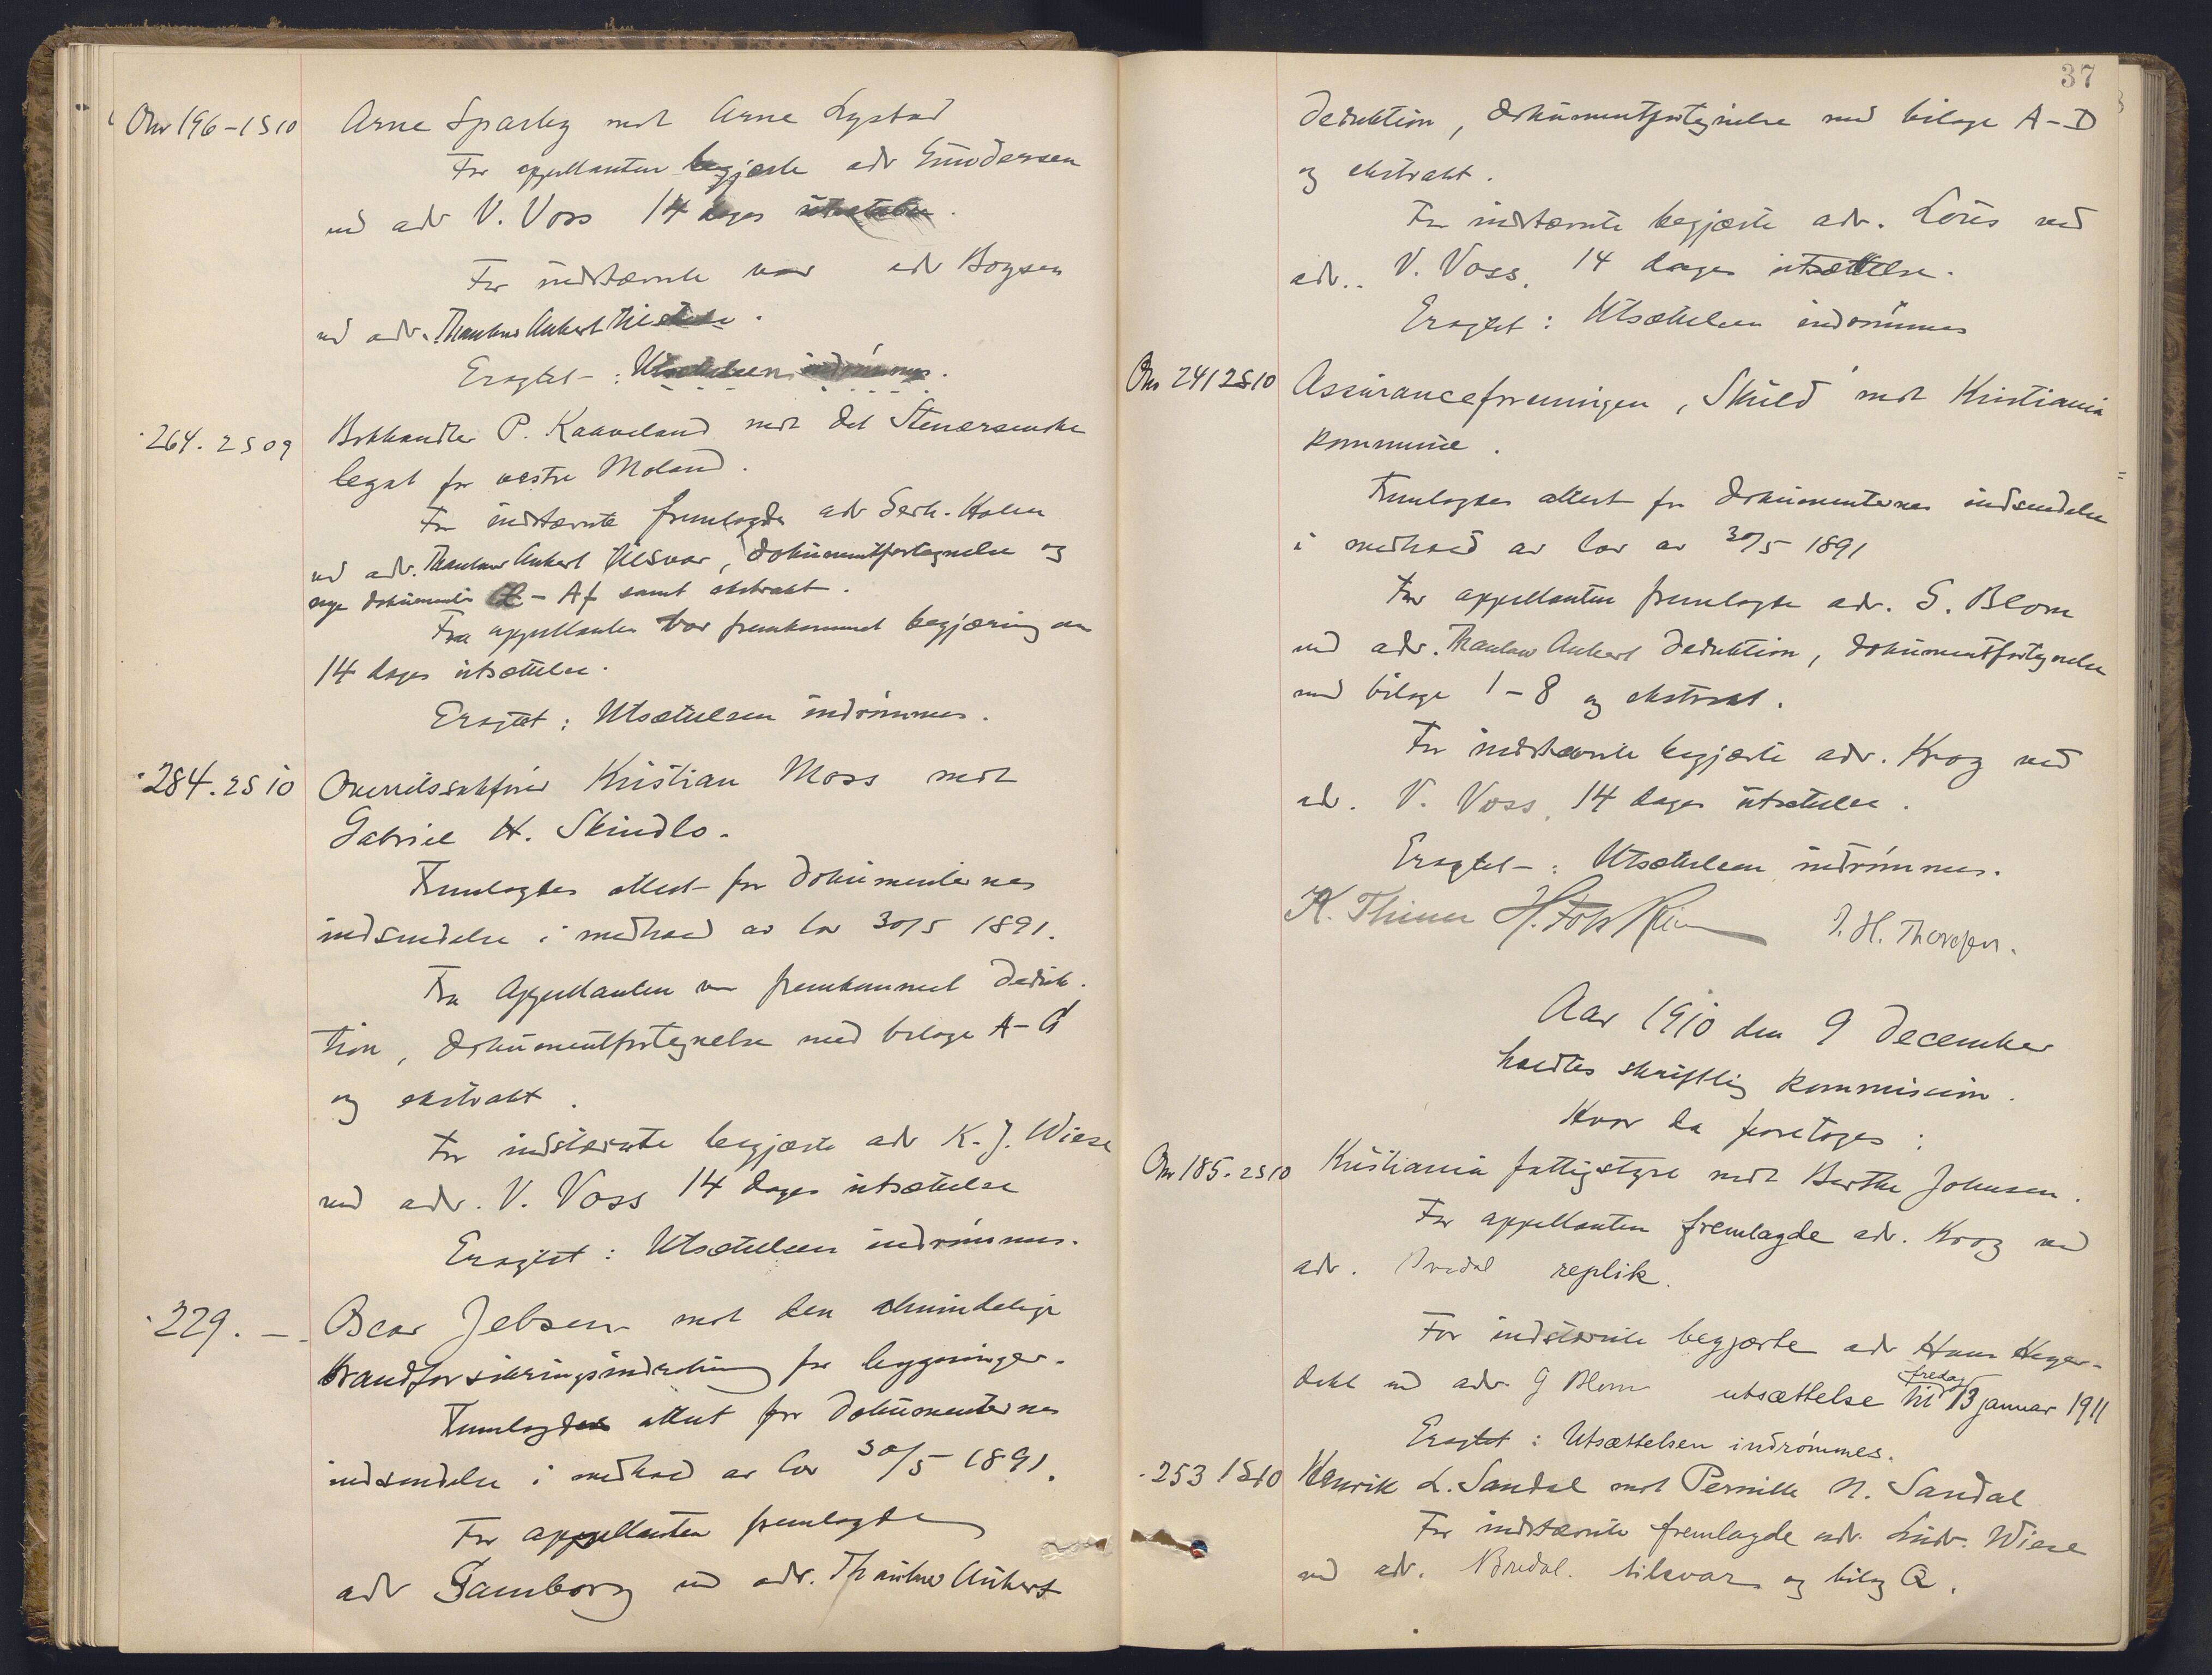 Onr 196-1S10 Arne Sparby mot Arne Lystad
For appellanten begjærte adv Gundersen
ved adv V. Voss 14 dages utsættelse.
For indstævnte var adv Boysen
ved adv. Thaulow Ankert tilstede.
Eragtet: Utsættelsen indrømmes.
264. 2S09 Bokhandler P. Kaaveland mot det Stenersenske
legat for vestre Moland.
For indstævnte fremlagdes adv Serh. Holm
ved adv. Thaulow Ankert tilsvar, dokumentfortegnelse og
nye dokumenter - Af samt ekstrakt.
Fra appellanten var fremkommet begjæring om
14 dages utsættelse.
Eragtet: Utsættelsen indrømmes.
284. 2S10 Overretssakfører Kristian Moss mot
Gabriel H. Skindlo.
Fremlagdes attest for dokumenternes
indsendelse i medhold av lov 30/5 1891.
Fra Appellanten var fremkommet deduk-
tion, dokumentfortegnelse med bilage A-G
og ekstrakt.
For indstævnte begjærte adv K. J. Wiese
ved adv. V. Voss 14 dages utsættelse
Eragtet: Utsættelsen indrømmes.
229. — Oscar Jebsen mot den almindelige
Brandforsikringsindretning for bygninger.
Fremlagdes attest for dokumenternes
indsendelse i medhold av lov 30/5 1891.
For appellanten fremlagde
adv Gamborg ved adv. Thaulow Ankert
37
deduktion, dokumentfortegnelse med bilage A-D
og ekstrakt.
For indstævnte begjærte adv. Lous ved
adv. V. Voss, 14 dages utsættelse.
Eragtet: Utsættelsen indrømmes
Onr 241 2S10 Assuranceforeningen "Skuld" mot Kristiania
kommune.
Fremlagdes attest for dokumenternes indsendelse
i medhold av lov av 30/5 1891
For appellanten fremlagde adv. G. Blom
ved adv. Thaulow Ankert deduktion, dokumentfortegnelse
med bilage 1-8 og ekstrakt.
For indstævnte begjærte adv. Krog ved
adv. V. Voss, 14 dages utsættelse.
Eragtet: Utsættelsen indrømmes.
K. Thinn J. H. Thoresen.
Aar 1910 den 9 december
holdtes skriftlig kommission.
Hvor da foretoges:
Onr 185. 2S10 Kristiania fattigstyre mot Berthe Johnsen.
For appellanten fremlagde adv. Krog ved
adv. Bredal replik.
For indstævnte begjærte adv Hans Heyer-
dahl ved adv. G Blom utsættelse til fredag 13 januar 1911
Eragtet: Utsættelsen indrømmes.
253 1S10 Henrik L. Sandal mot Pernille N. Sandal
For indstævnte fremlagde adv. Ludv. Wiese
ved adv. Bredal. tilsvar og bilag Q.